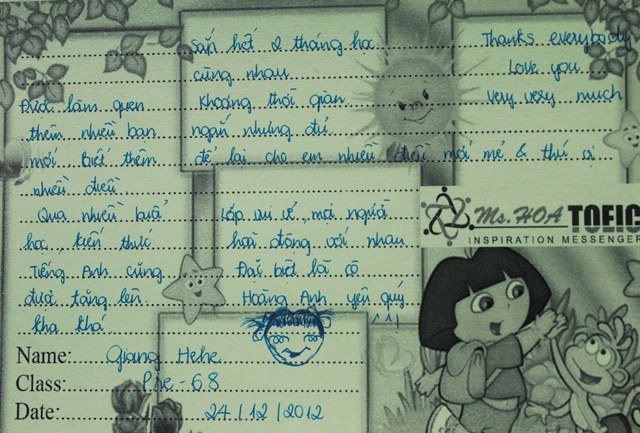 Sắp hết 2 tháng học
cùng nhau
Khoảng thời gian
ngắn nhưng đủ
để lại cho em nhiều điều mới mẻ & thú vị
Được làm quen
thêm nhiều bạn
mới. Biết thêm
nhiều điều
Qua nhiều buổi
học, kiến thức
Tiếng Anh cũng
được tăng lên
kha khá
Lớp vui vẻ, mọi người
hoà đồng với nhau
Đặc biệt là cô
Hoàng Anh yêu quý
Thanks everybody
Love you
Very very much
Ms.HOA TOEIC
INSPIRATION MESSENGER
Name: Giang Hehe
Class: Pre - 68
Date: 24/12/2012